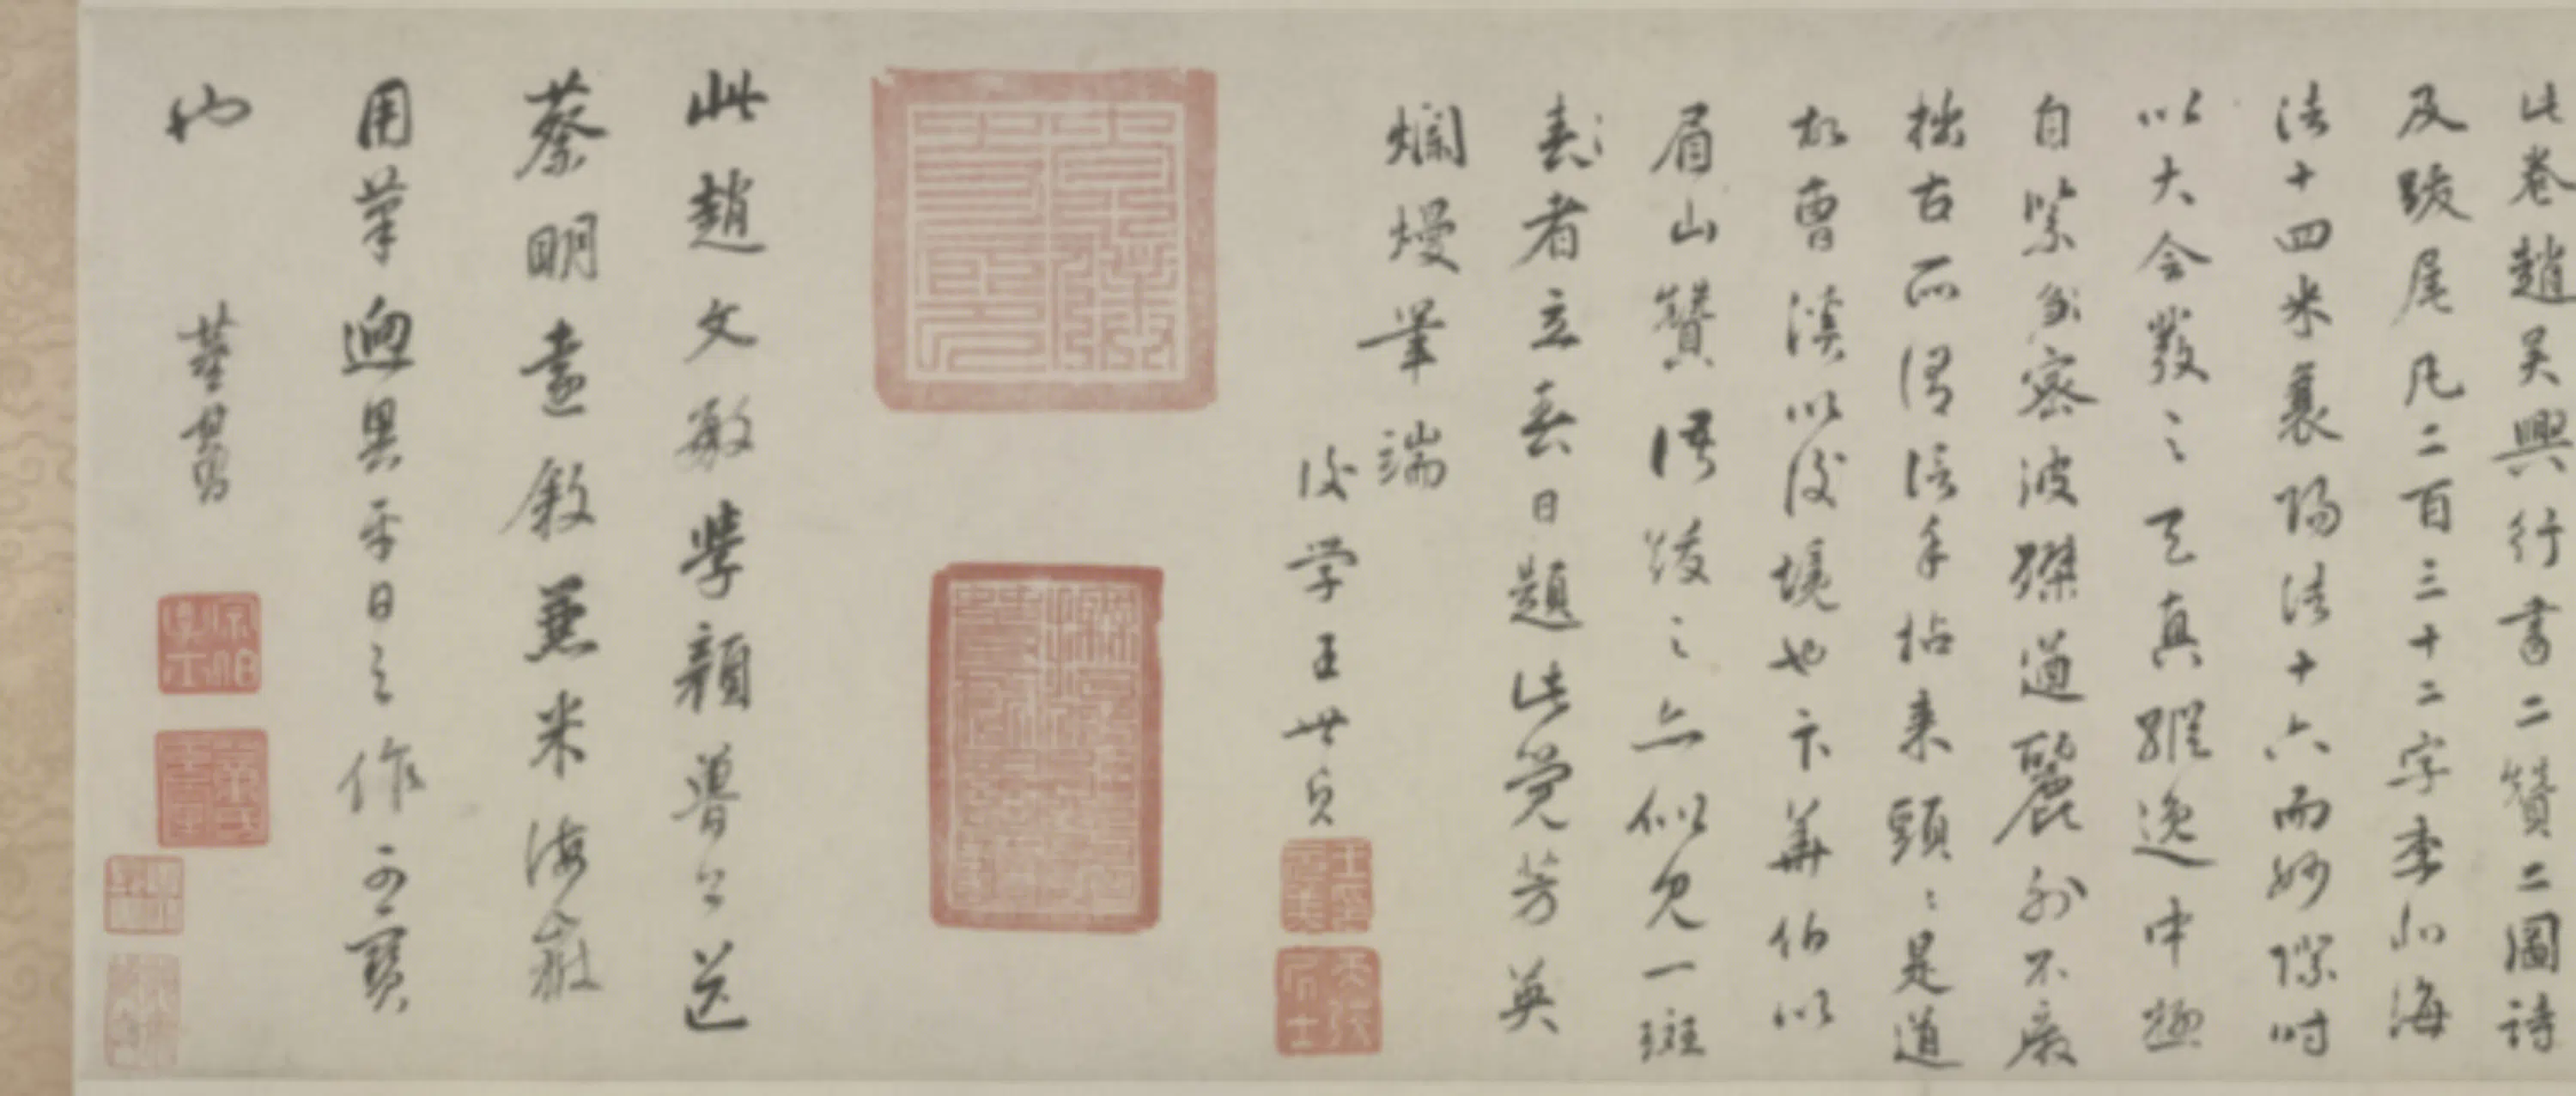 此卷趙吳興行書二贊二圖詩
及跋尾凡二百三十二字李北海
法十四米襄陽法十六而妙際時
以大令發之天真縱逸中極
自緊密波磔遒麗外不廢
拙古所謂信手拈来頭頭是道
如曹溪以後境也卞華伯以
眉山贊語跋之亦似見一斑
春者立春日題此覺芳英
爛熳筆端
後学王世貞
此趙文敏學顏魯公送
蔡明遠敘兼米海嶽
用筆迥異平日之作可寶
也 董其昌